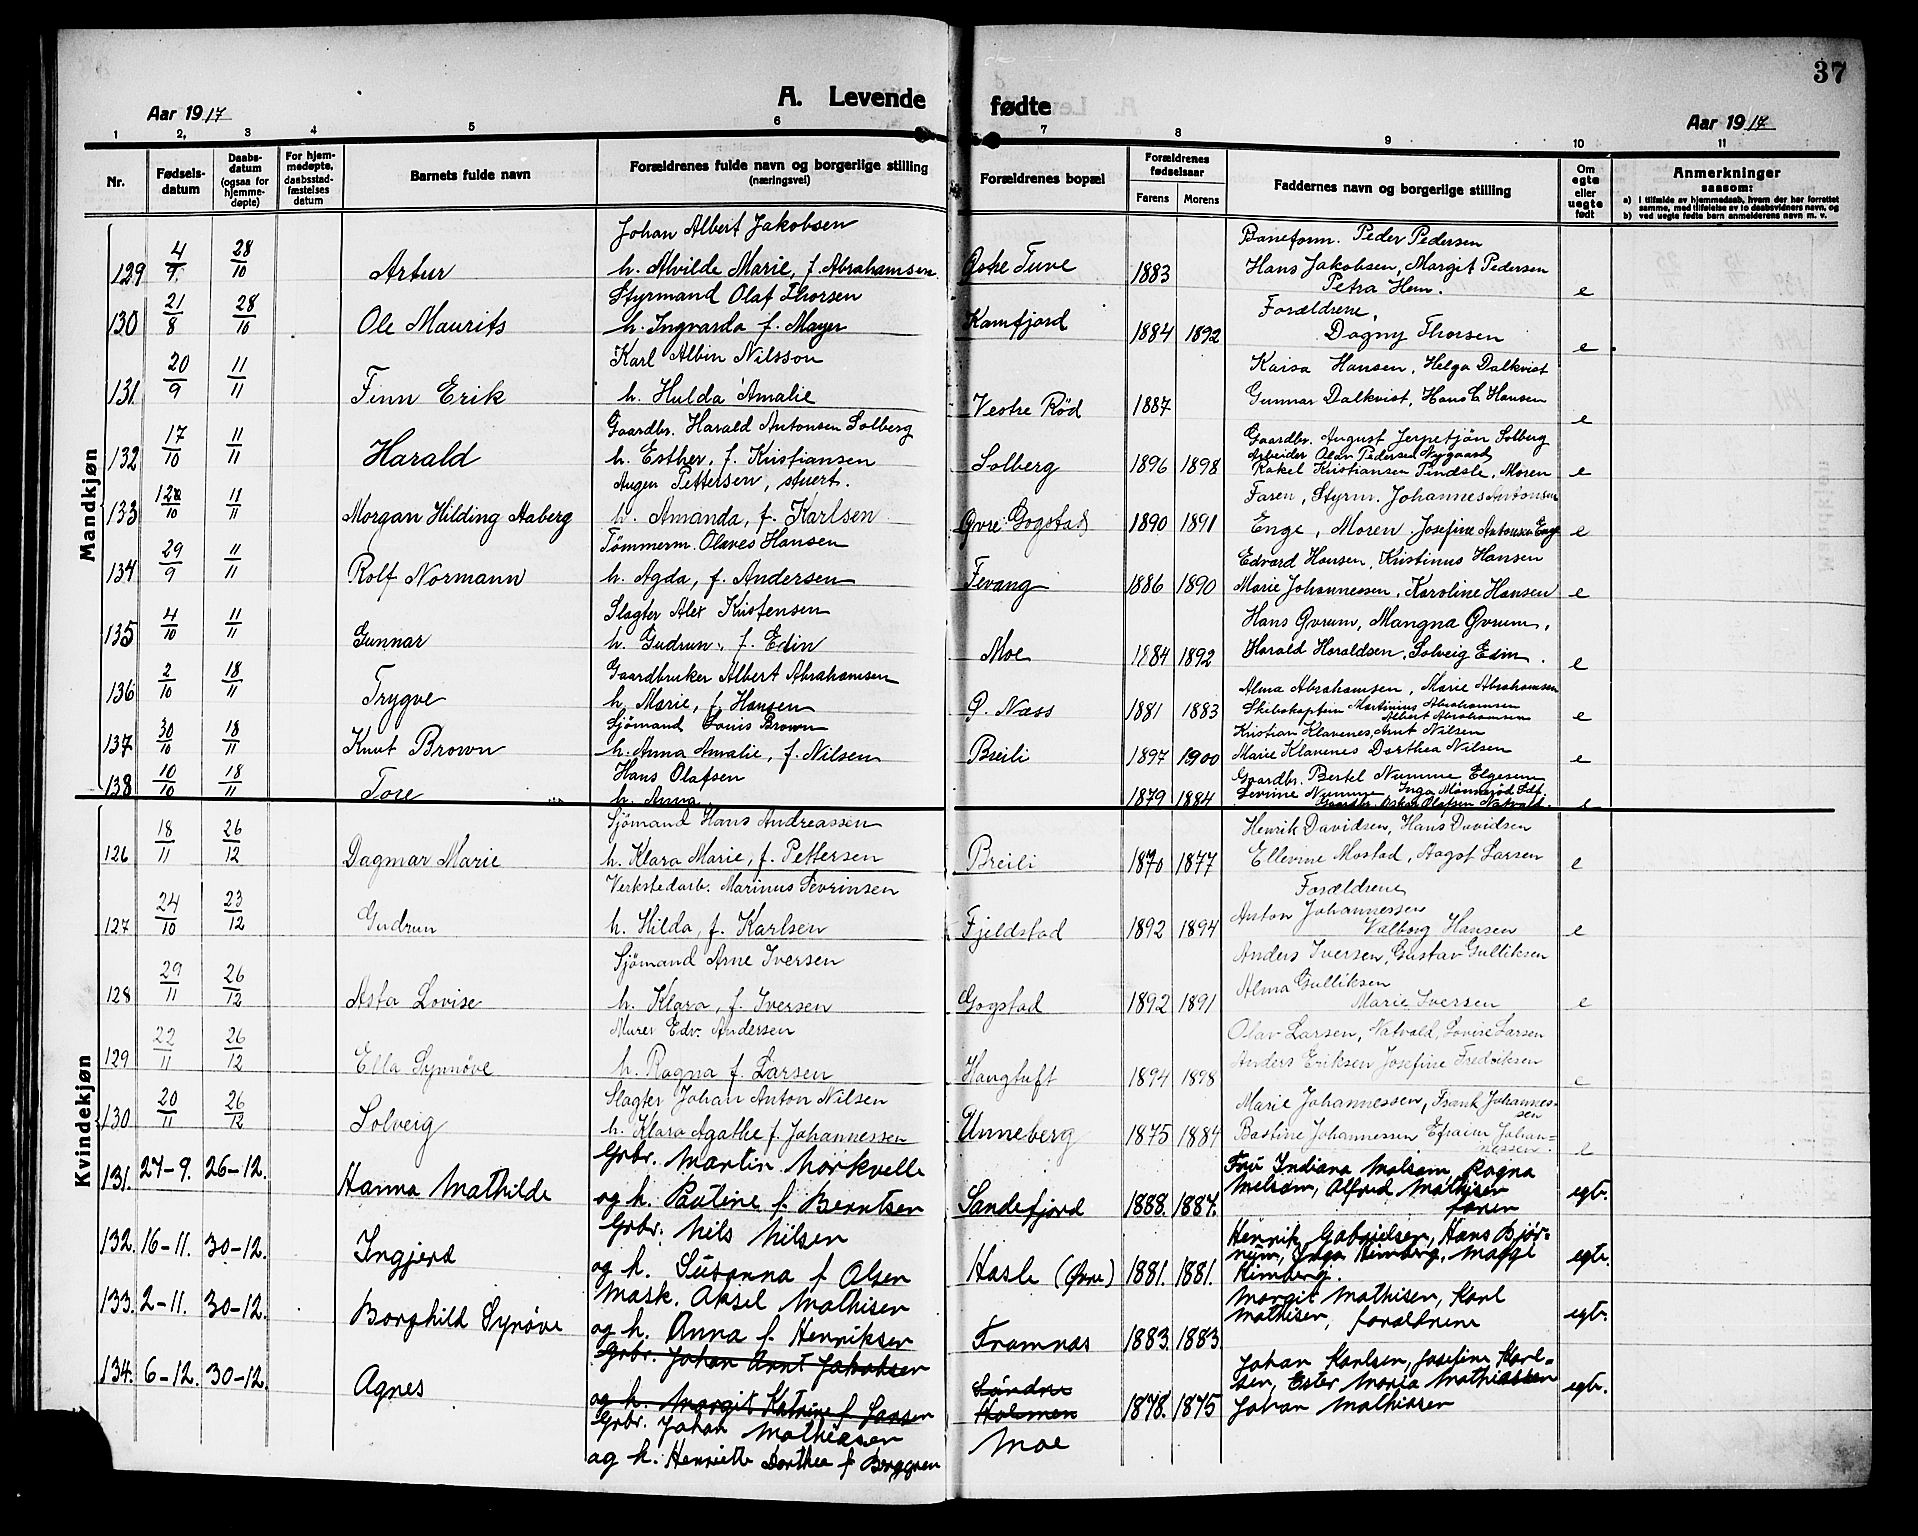 37
A. Levende fødte
Aar 1917
Aar 1917
1 2, 3 4 5 6 7 8 9 10 11
Nr. Fødsels-datum Daabs-datum (ogsaa for hjemme-døpte) For hjem-medøpte, daabsstad-fæstelses datum Barnets fulde navn Forældrenes fulde navn og borgerlige stilling (næringsvei) Forældrenes bopæl Forældrenes fødselsaar Farens Morens Faddernes navn og borgerlige stilling Om egte eller uegte født Anmerkninger saasom:
a) i tilfælde av hjemmedaab, hvem der har forrettet samme, med tilføielse av to daabsvidners navn, og
b) ved uegte fødte barn anmelderens navn m. v.
Mandkjøn
Johan Albert Jakobsen Baneform. Peder Pedersen
129 4/9 28/10 Artur h. Alvilde Marie, f. Abrahamsen Østre Tuve 1883 Hans Jakobsen, Margit Pedersen
Petra Hem. e
Styrmand Olaf Thorsen Forældrene,
130 21/8 28/10 Ole Maurits h. Ingvarda f. Mayer Kamfjord 1884 1892 Dagny Thorsen e
Karl Albin Nilsson Kaisa Hansen, Helga Dalkvist
131. 20/9 11/11 Finn Erik h. Hulda Amalie Vestre Rød 1887 Gunnar Dalkvist, Hans C. Hansen e
Gaardbr. Harald Antonsen Solberg Gaardbr. August Jerpetjøn Solberg
Arbeider Olav Pedersen Nygaard
132 17/10 11/11 Harald h. Esther, f. Kristiansen Solberg 1896 1898 Rakel Kristiansen Tindsle, Moren e
Augen Pettersen, stuert. Faren, Styrm. Johannes Antonsen
133 12/10 11/11 Morgan Hilding Aaberg h. Amanda, f. Karlsen Øvre Gogstad 1890 1891 Enge, Moren. Josefine Antonsen Enge e
Tømmerm. Olaves Hansen Edvard Hansen, Kristinus Hansen
134 29/9 11/11 Rolf Normann h. Agda, f. Andersen Fevang 1886 1890 Marie Johannessen, Karoline Hansen e
Slagter Alex Kristensen Hans Qvrum, Mangna Qvrum,
135 4/10 11/11 Gunnar h. Gudrun, f. Edin Moe 1884 1892 Harald Haraldsen, Solveig Edin. e
Gaardbruker Albert Abrahamsen Alma Abrahamsen, Marie Abrahamsen
136 2/10 18/11 Trygve h. Marie, f. Hansen Ø. Næss 1881 1883 Skibskaptein Martinius Abrahamsen
Albert Abrahamsen e
Sjømand Louis Brown Kristian Klavenes, Arnt Nilsen
137 30/10 18/11 Knut Brown h. Anna Amalie, f. Nilsen Breili 1897 1900 Marie Klavenes Dorthea Nilsen e
Hans Olafsen Gaardbr. Bertel Numme Elgesem
138 10/10 18/11 Tore h. Anna 1879 1884 Levine Numme, Inga
Gaardbr. Oskar Olafsen Natvald. e
Kvindekjøn
Sjømand Hans Andreassen Henrik Davidsen, Hans Davidsen
126 18/11 26/12 Dagmar Marie h. Klara Marie, f. Pettersen Breili 1870 1877 Ellevine Mostad, Aagot Larsen e
Verkstedarb. Marinus Sevrinsen Forældrene
127 24/10 23/12 Gudrun h. Hilda, f. Karlsen Fjeldstad 1892 1894 Anton Johannessen
Valborg Hansen e
Sjømand Arne Iversen Anders Iversen, Gustav Gulliksen
128 29/11 26/12 Asta Lovise h. Klara, f. Iversen Gogstad 1892 1891 Alma Gulliksen
Marie Iversen e
Murer Edv. Andersen Olav Larsen, Natvald, Lovise Larsen
129 22/11 26/12 Ella Synnøve h. Ragna f. Larsen Haugtuft 1894 1898 Anders Eriksen Josefine Fredriksen e
Slagter Johan Anton Nilsen Marie Johannessen, Frank Johannes-
sen
130 20/11 26/12 Solveig h. Klara Agathe f. Johannessen Unneberg 1875 1884 Bastine Johannessen Efraim Johan=
nessen. e
Grbr. Martin Mørkvelle Fru Indiana Melsom, Ragna
131. 27-9. 26-12. Hanna Mathilde og h. Pauline f. Berntsen Sandefjord 1888. 1887. Melsom, Alfred Mathisen
faren egb.
Grbr. Nils Nilsen Henrik Gabrielsen, Hans Bjør-
132. 16-11. 30-12. Ingjerd og h. Susanna f Olsen Hasle (Øvre) 1881. 1881. num, Inga Kimberg, Maggi
Kimberg. egb.
Mask. Aksel Mathisen Margit Mathisen, Karl
133. 2-11. 30-12. Borghild Synøve og h. Anna f. Henriksen Framnæs 1883. 1883. Mathisen, forældrene egb.
Grbr. Johan Arnt Jakobsen Johan Karlsen, Josefine Karl=
134. 6-12. 30-12. Agnes og h. Margit Katrine f. Larsen Søndre Holmen 1878. 1875 sen, Ester Maria Mathiassen egb.
Grbr. Johan Mathiasen Moe Johan Mathiasen
og h. Henriette Dorthea f Berggren